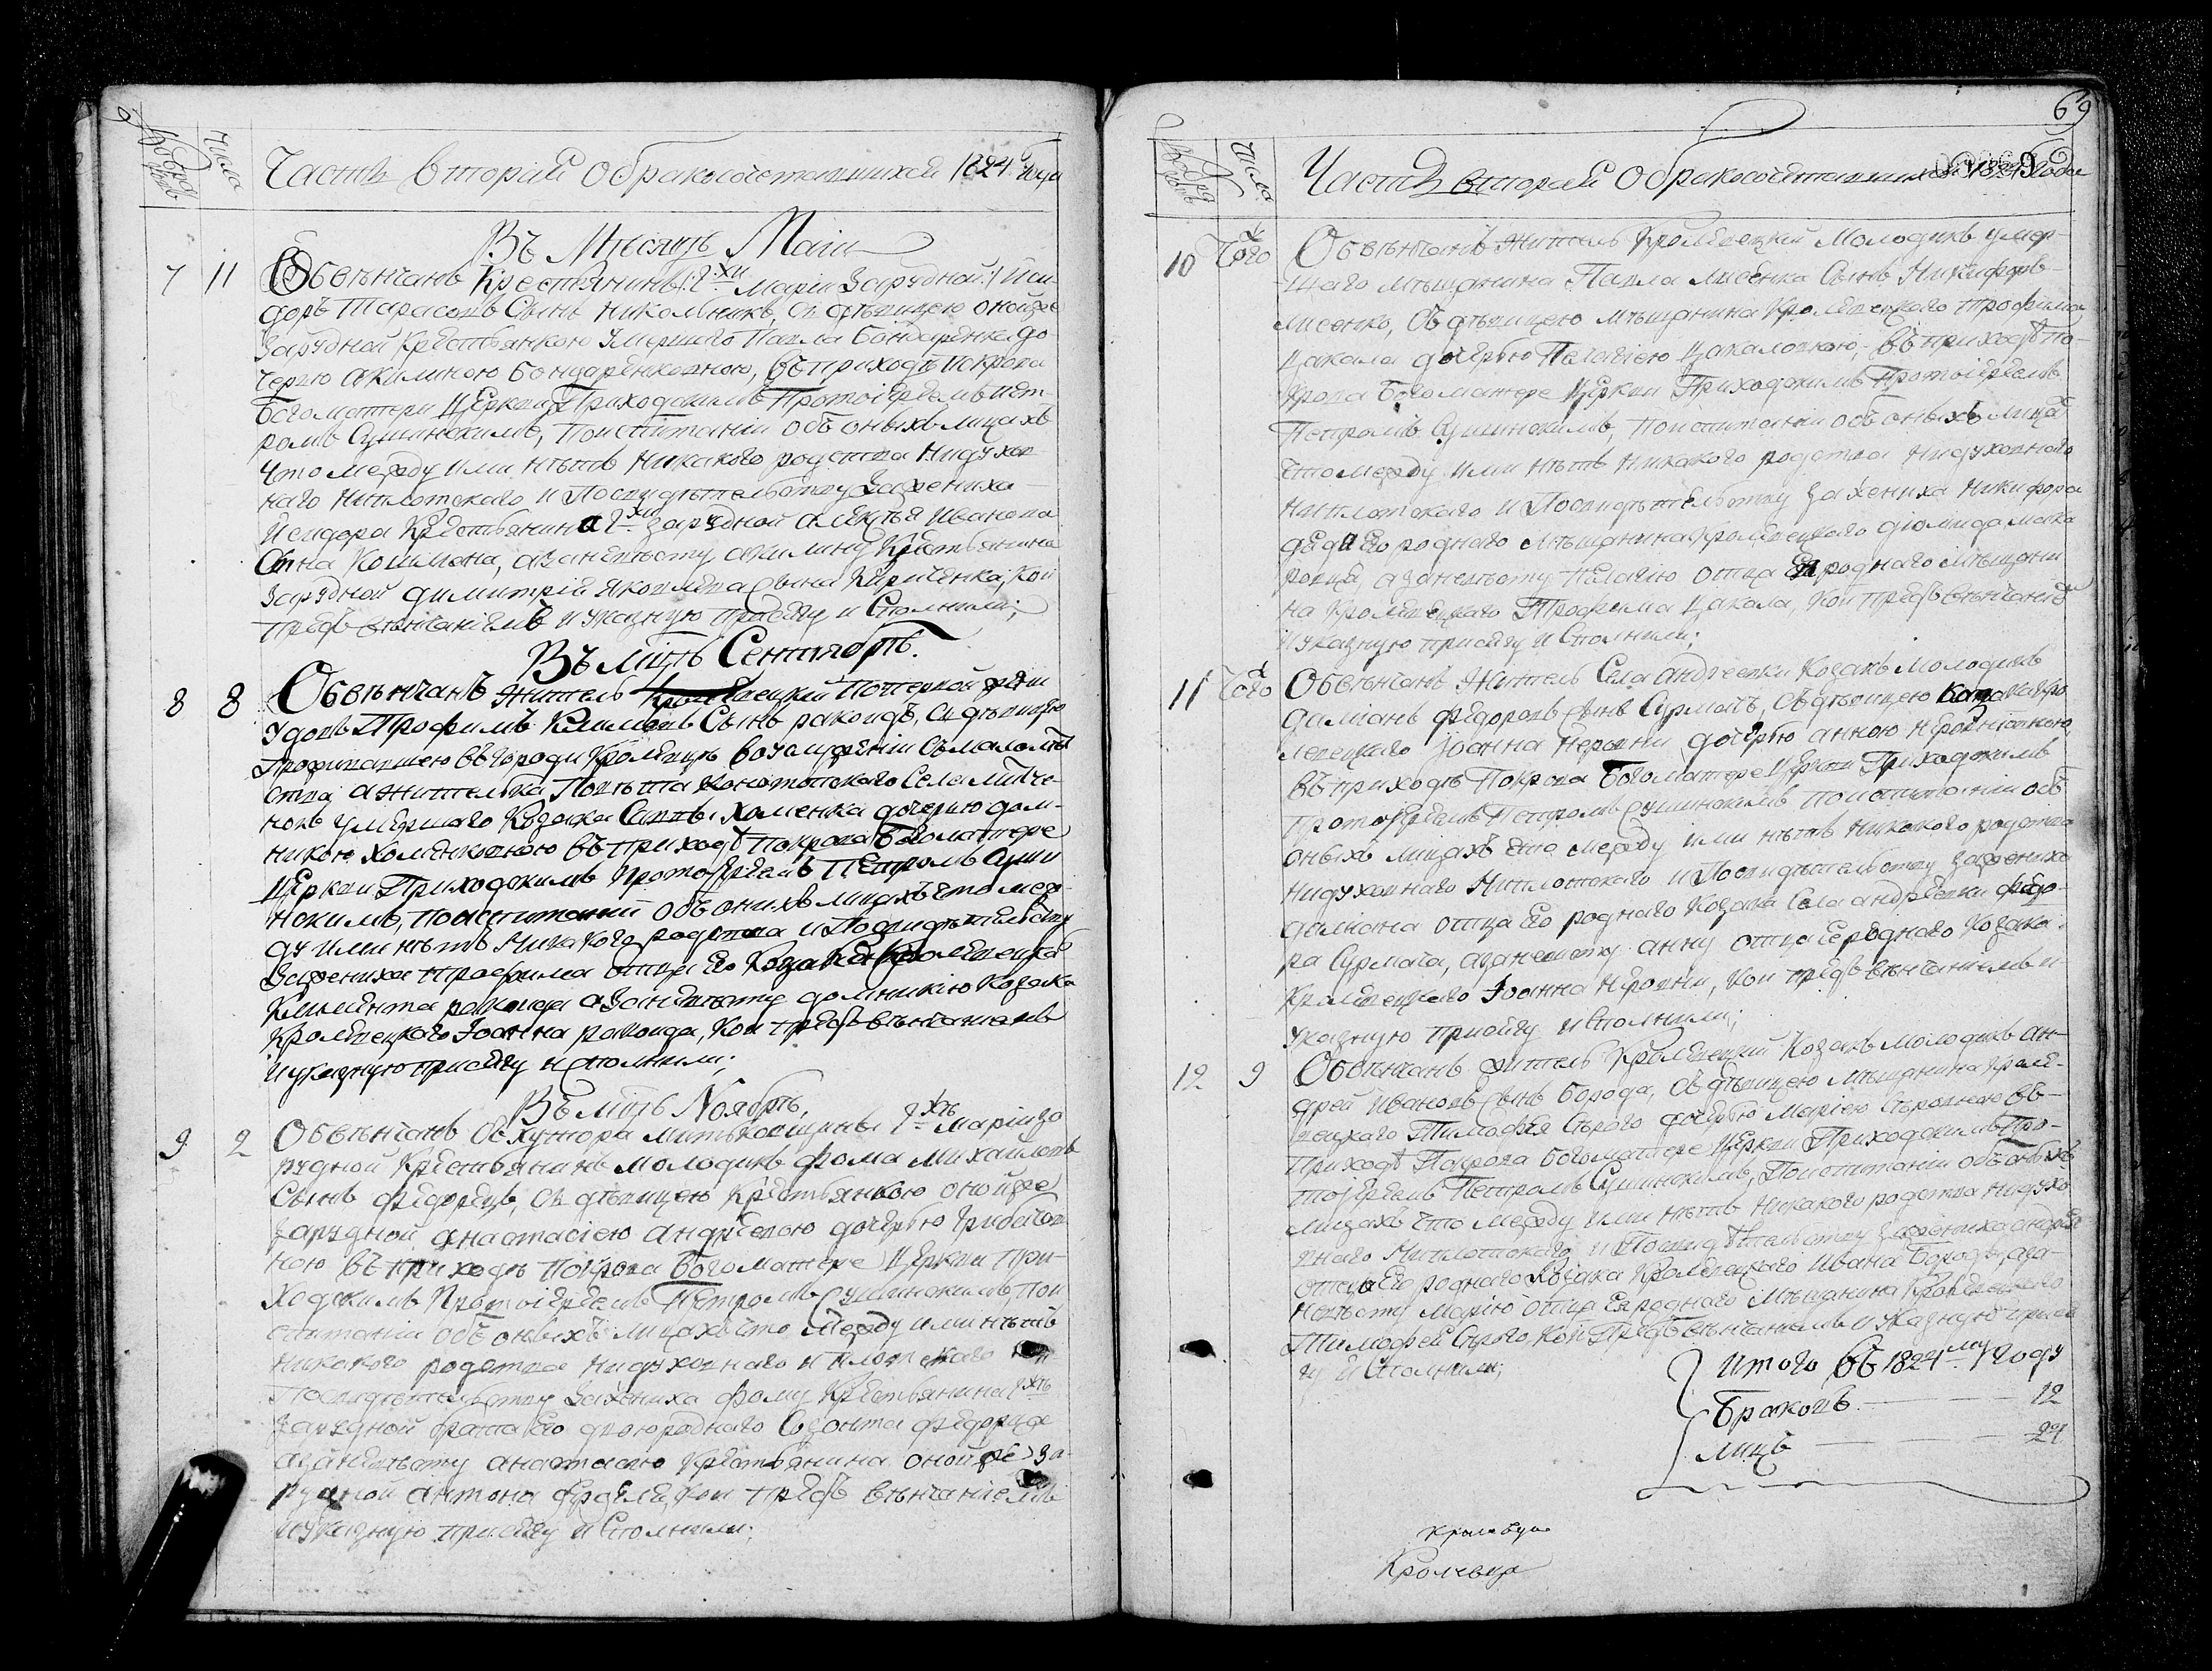 Часть вторая о бракосочетавшихся 1824 года
Въ Месяцѣ Маіи
7 11 Обвѣнчанъ Крестьянинъ Г-жи Маріи Зарудной Иси-
доръ Тарасовъ Сынъ Никольникъ, съ дѣвицею оной же
Зарудной Крестьянкою Умершаго Павла Бондаренка до
черью Акилиною Бондаренковною, въ приходѣ Покрова
Богоматери Церкви Приходскимъ Протоіереемъ Пет-
ромъ Сушинскимъ, По испытаніи объ оныхъ лицахъ
Что между ими нѣтъ Никакого родства Ни духов
наго Ни плотскаго и По свидѣтельству За жениха
Исидора Крестьянина Г-жи Зарудной Алексѣя Иванова
Сына Кошмана, а за невѣсту Акилину Крестьянина
Зарудной Димитрій Яковлева сына Кириченка, Кои
предъ вѣнчаніемъ и указную присягу и сполнили;
Въ мцѣ Сентябрѣ.
8 8 Обвѣнчанъ Житель Кролевецкій
Удовъ Трофимъ Климовъ Сынъ Раковдъ, съ дѣвицею
Проживавшею въ городи Кролевцѣ въ услуженіи съ малолѣт
ства а жителька Повѣта Конотопскаго Села
умершаго Козака Саввы Хоменка дочерью Дом-
никою Хоменковною въ приходѣ Покрова Богоматере
Церкви Приходскимъ Протоіереемъ Петромъ Суши
нскимъ, по испытаніи объ онихъ лицахъ что меж-
ду ими нѣтъ Никакого родства и По свидѣтельству
За жениха Трофима отца его Козака Кролевецка
Климента а за невѣсту Домникію Козака
Кролевецкого Іоанна Кои предъ вѣнчаніемъ
и указную присягу и сполнили;
Въ мцѣ Ноябрѣ,
9 2 Обвѣнчанъ Съ хутора Митьковщины Г-жъ Маріи За
рудной Крестьянинъ молодикъ Фома Михайловъ
Сынъ Федорецъ, съ дѣвицею Крестьянкою оной же
Зарудной Анастасіею Андреевою дочерью
ною въ приходѣ Покрова Богоматере Церкви При-
ходскимъ Протоіереемъ Петромъ Сушинскимъ, По и
спытаніи объ оныхъ лицахъ что между ими нѣтъ
никакого родства ни духовнаго ни плотскаго и
По свидѣтельству За жениха Фому Крестьянина Г-жъ
Зарудной брата его двоюроднаго Созонта Федорца
а за невѣсту Анастасію Крестьянина оной же За-
рудной Антона кои предъ вѣнчаніемъ
и указную присягу и сполнили;
69
Часть вторая о бракосочетавшихся 1824 года
10 Того Обвѣнчанъ Житель Кролевецкій Молодикъ умер-
шаго мѣщанина Павла Лисенка Сынъ Никифоръ
Лисенко, съ дѣвицею мѣщанина Кролевецкого Трофима
Цакала дочерью Пелагіею Цакаловною, въ приходѣ По-
крова Богоматере Церкви Приходскимъ Протоіереемъ
Петромъ Сушинскимъ, По испытаніи объ оныхъ лицахъ
что между ими нѣтъ никакого родства ни духовнаго
ни плотскаго и По свидѣтельству за жениха Никифора
деда его роднаго Мѣщанина Кролевецкаго Діомида
а за невѣсту Пелагію отца ея роднаго мѣщани
на Кролевецкаго Трофима Цакала, Кои предъ вѣнчаніемъ
и указную присягу и сполнили;
11 Того Обвѣнчанъ Житель Села Андреевки Козакъ Молодикъ
Даміанъ Федоровъ сынъ Сурмачъ, съ дѣвицею Козака Кро
левецкаго Іоанна Неровни дочерью Анною Неровнѣвною,
въ приходѣ Покрова Богоматере Церкви Приходскимъ
Протоіереемъ Петромъ Сушинскимъ По испытаніи объ
оныхъ лицахъ что между ими нѣтъ никакого родства
ни духовнаго ни плотскаго и По свидѣтельству за жениха
Даміана отца его роднаго Козака Села Андреевки Федо-
ра Сурмача, а за невесту Анну отца ее роднаго Козака
Кролевецкаго Іоанна Неровни, Кои предъ вѣнчаніемъ и
указную присягу и сполнили;
12 9 Обвѣнчанъ Житель Кролевецкій Козакъ молодикъ Ан-
дрей Ивановъ сынъ Борода, съ дѣвицею мѣщанина Кроле-
вецкаго Тимофея Сѣрого дочерью Маріею Сѣровною въ
Приходѣ Покрова Богоматере Церкви Приходскимъ Про-
тоіереемъ Петромъ Сушинскимъ, По испытаніи объ оныхъ
лицахъ что между ими нѣтъ никакого родства ни духо
внаго ни плотскаго, и По свидѣтельству за жениха Андрея
отца его роднаго Козака Кролевецкаго Ивана Бороды, а за
невѣсту Марію отца ея роднаго мѣщанина Кролевецкаго
Тимофея Сѣрого, Кои Предъ вѣнчаніемъ и указную прися
гу и сполнили;
Итого въ 1824 му году
Браковъ 12
лицъ 24
Кролевца
Кролевца